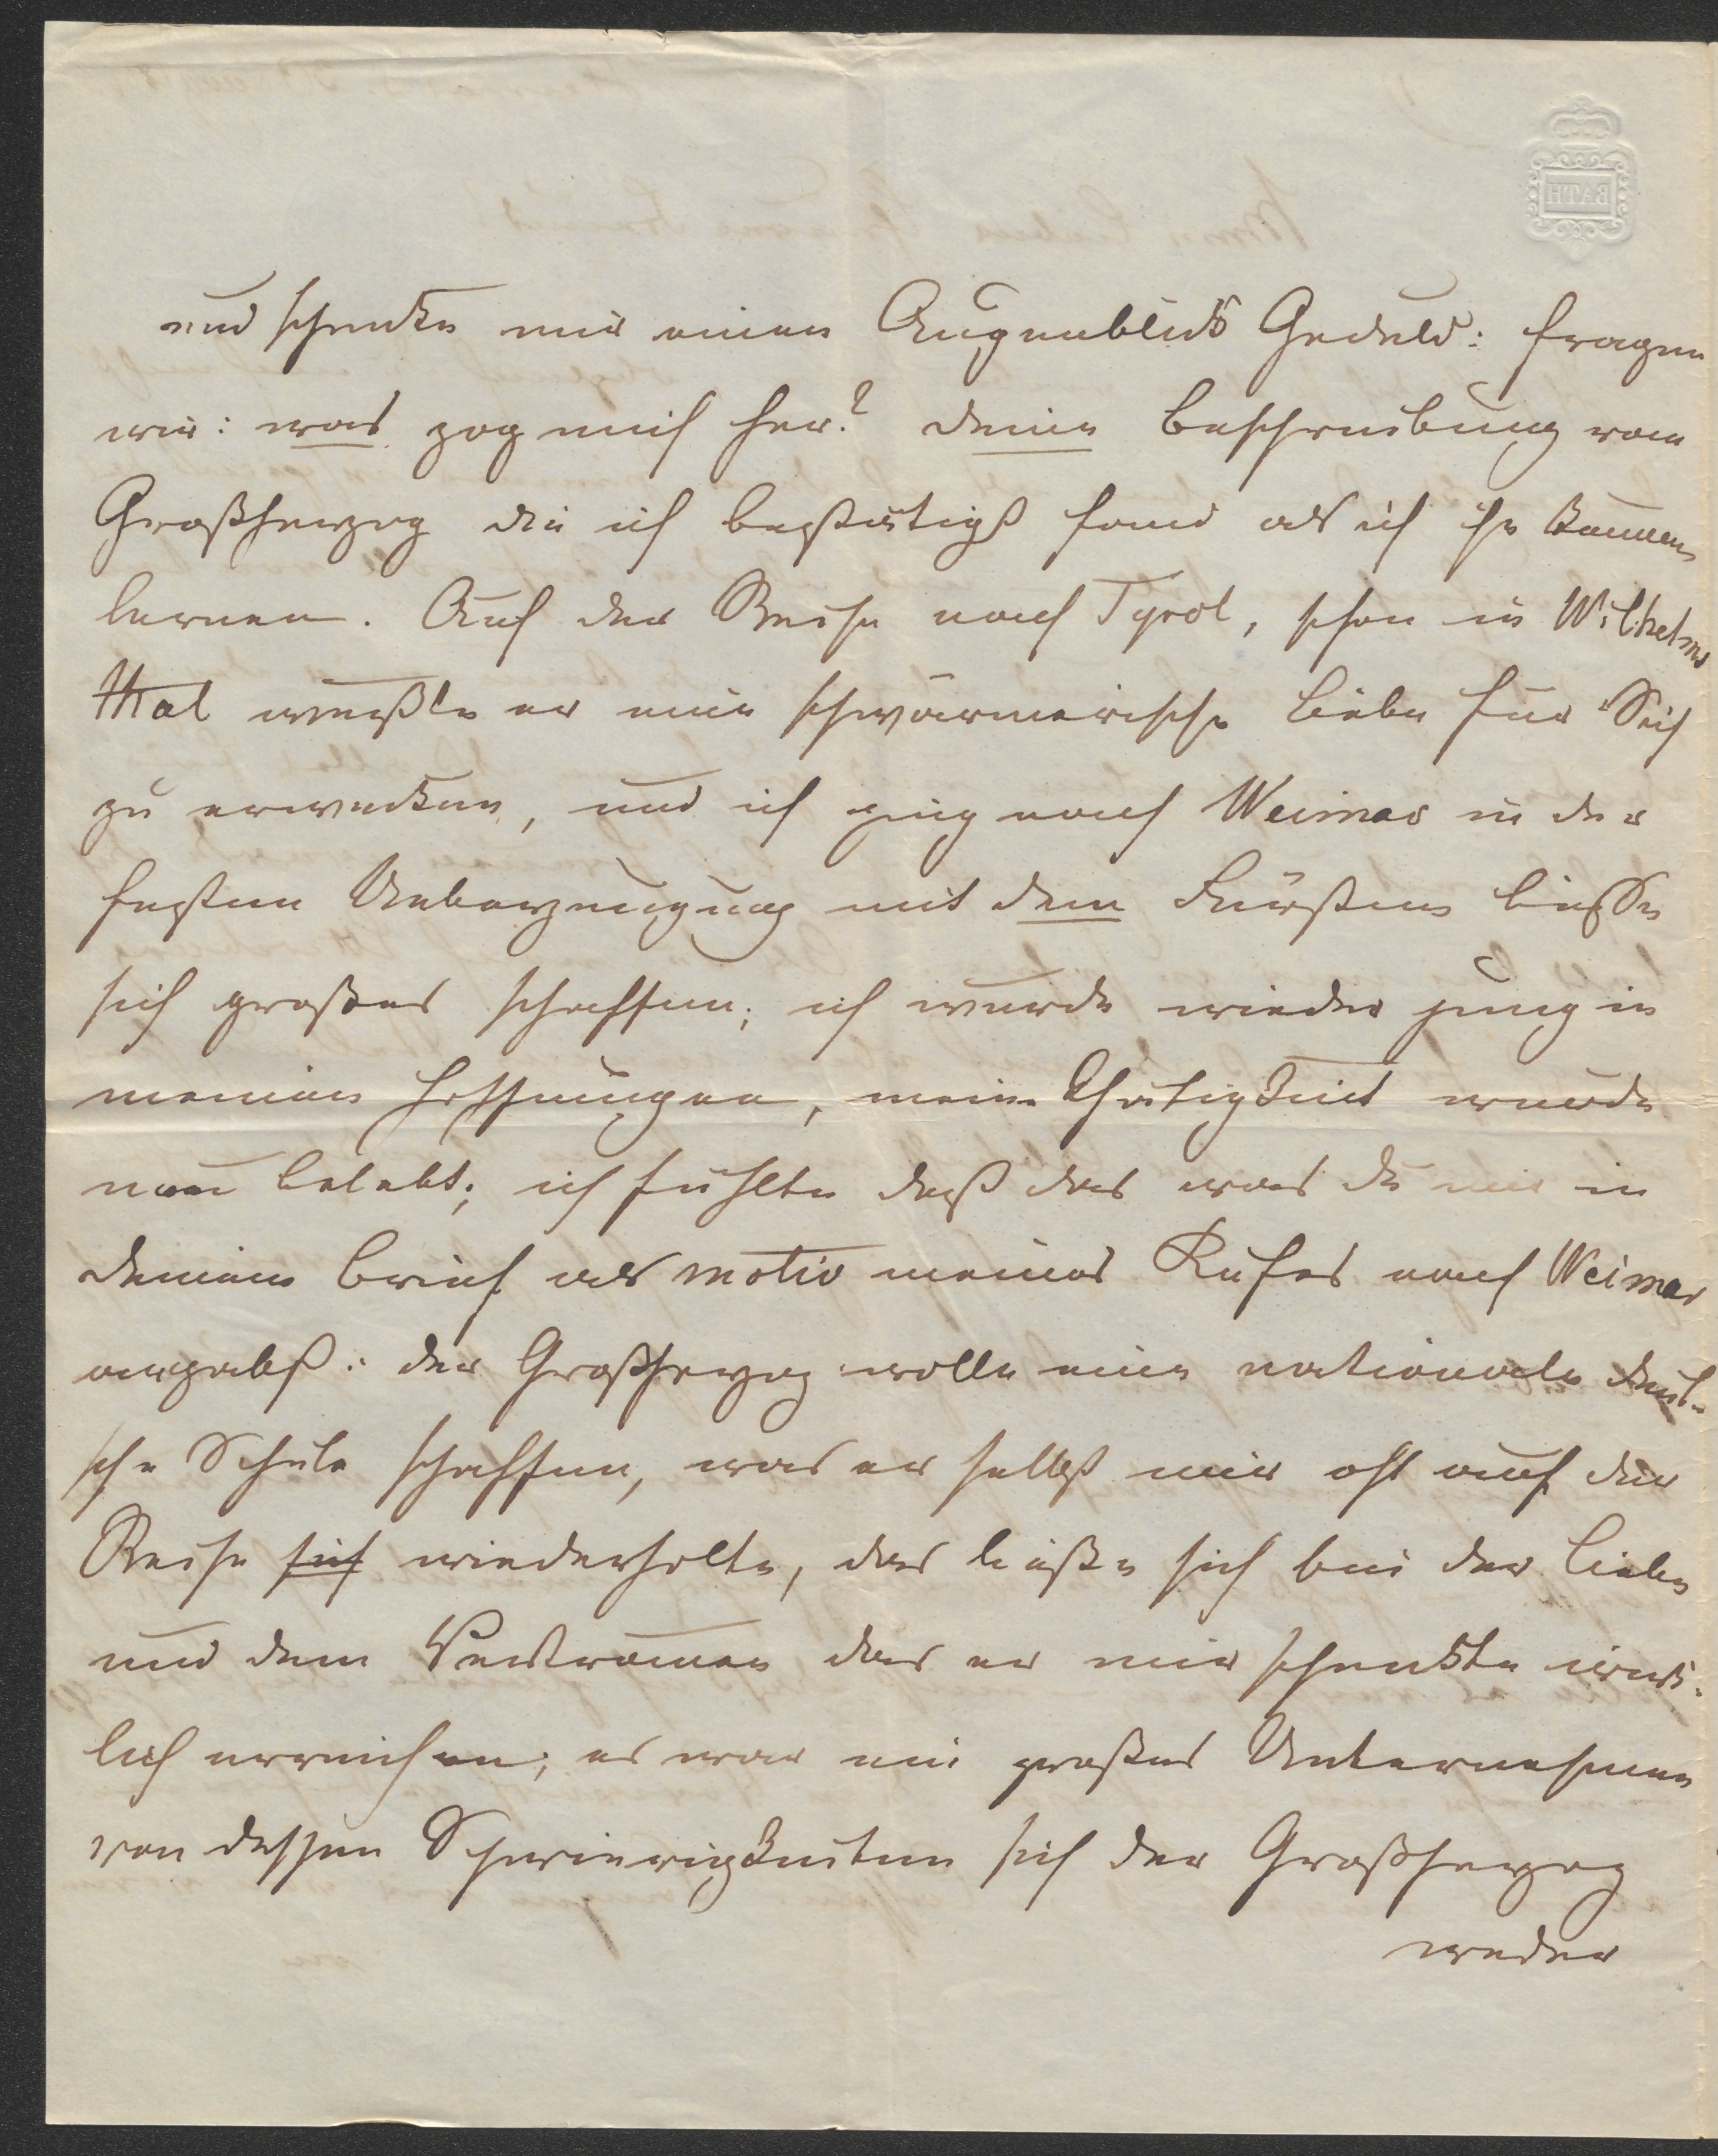 BATH
und schenke mir einen Augenblick Geduld: fragen
wir: was zog mich her? deine Beschreibung vom
Großherzog die ich bestätigt fand als ich ihn kennen
lernen. Auf der Reise nach Tyrol, schon in Wilhelms
thal wußte er eine schwärmerische Liebe für Sich
zu erwecken, und ich ging nach Weimar in der
festen Ueberzeugung mit dem Fürsten ließe
sich großes schaffen; ich wurde wieder jung in
meinen Hoffnungen, meine Thätigkeit wurde
neu belebt; ich fühlte daß das was du mir in
deinem Brief als motiv meines Rufes nach Weimar
angabst: der Großherzog wolle eine nationale deut-
sche Schule schaffen, was er selbst mir oft auf der
Reise sich wiederholte, das ließe sich bei der Liebe
und dem Vertrauen das er mir schenkte wirk-
lich erreichen; es war ein großes Unternehmen
von dessen Schwierigkeiten sich der Großherzog
weder